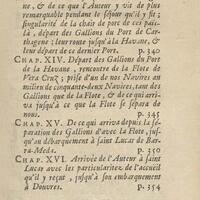 ne, & de ce que l'Auteur y vit de plus
remarquable pendant le sejour qu'il y fit;
singularité de la chair de porc de ces païs-
là, départ des Gallions du Port de Car-
thagene; leur route jusqu'à la Havane, &
leur départ de ce dernier Port. p. 340
CHAP. XIV. Départ des Gallions du Port
de la Havane, rencontre de la Flote de
Vera Cruz; prise d'un de nos Navires au
milieu de cinquante-deux Navires, tant des
Gallions que de la Flote, & de ce qui arri-
va jusqu'à ce que la Flote se separa de
nous. p. 345
CHAP. XV. De ce qui arriva depuis la sé-
paration des Gallions d'avec la Flote, jus-
qu'au débarquement à saint Lucar de Bar-
ra-Meda. p. 350
CHAP. XVI. Arrivée de l'Auteur à saint
Lucar avec les particularitez de l'accueil
qu'il y reçut, jusqu'à son embarquement
à Douvres. p. 354